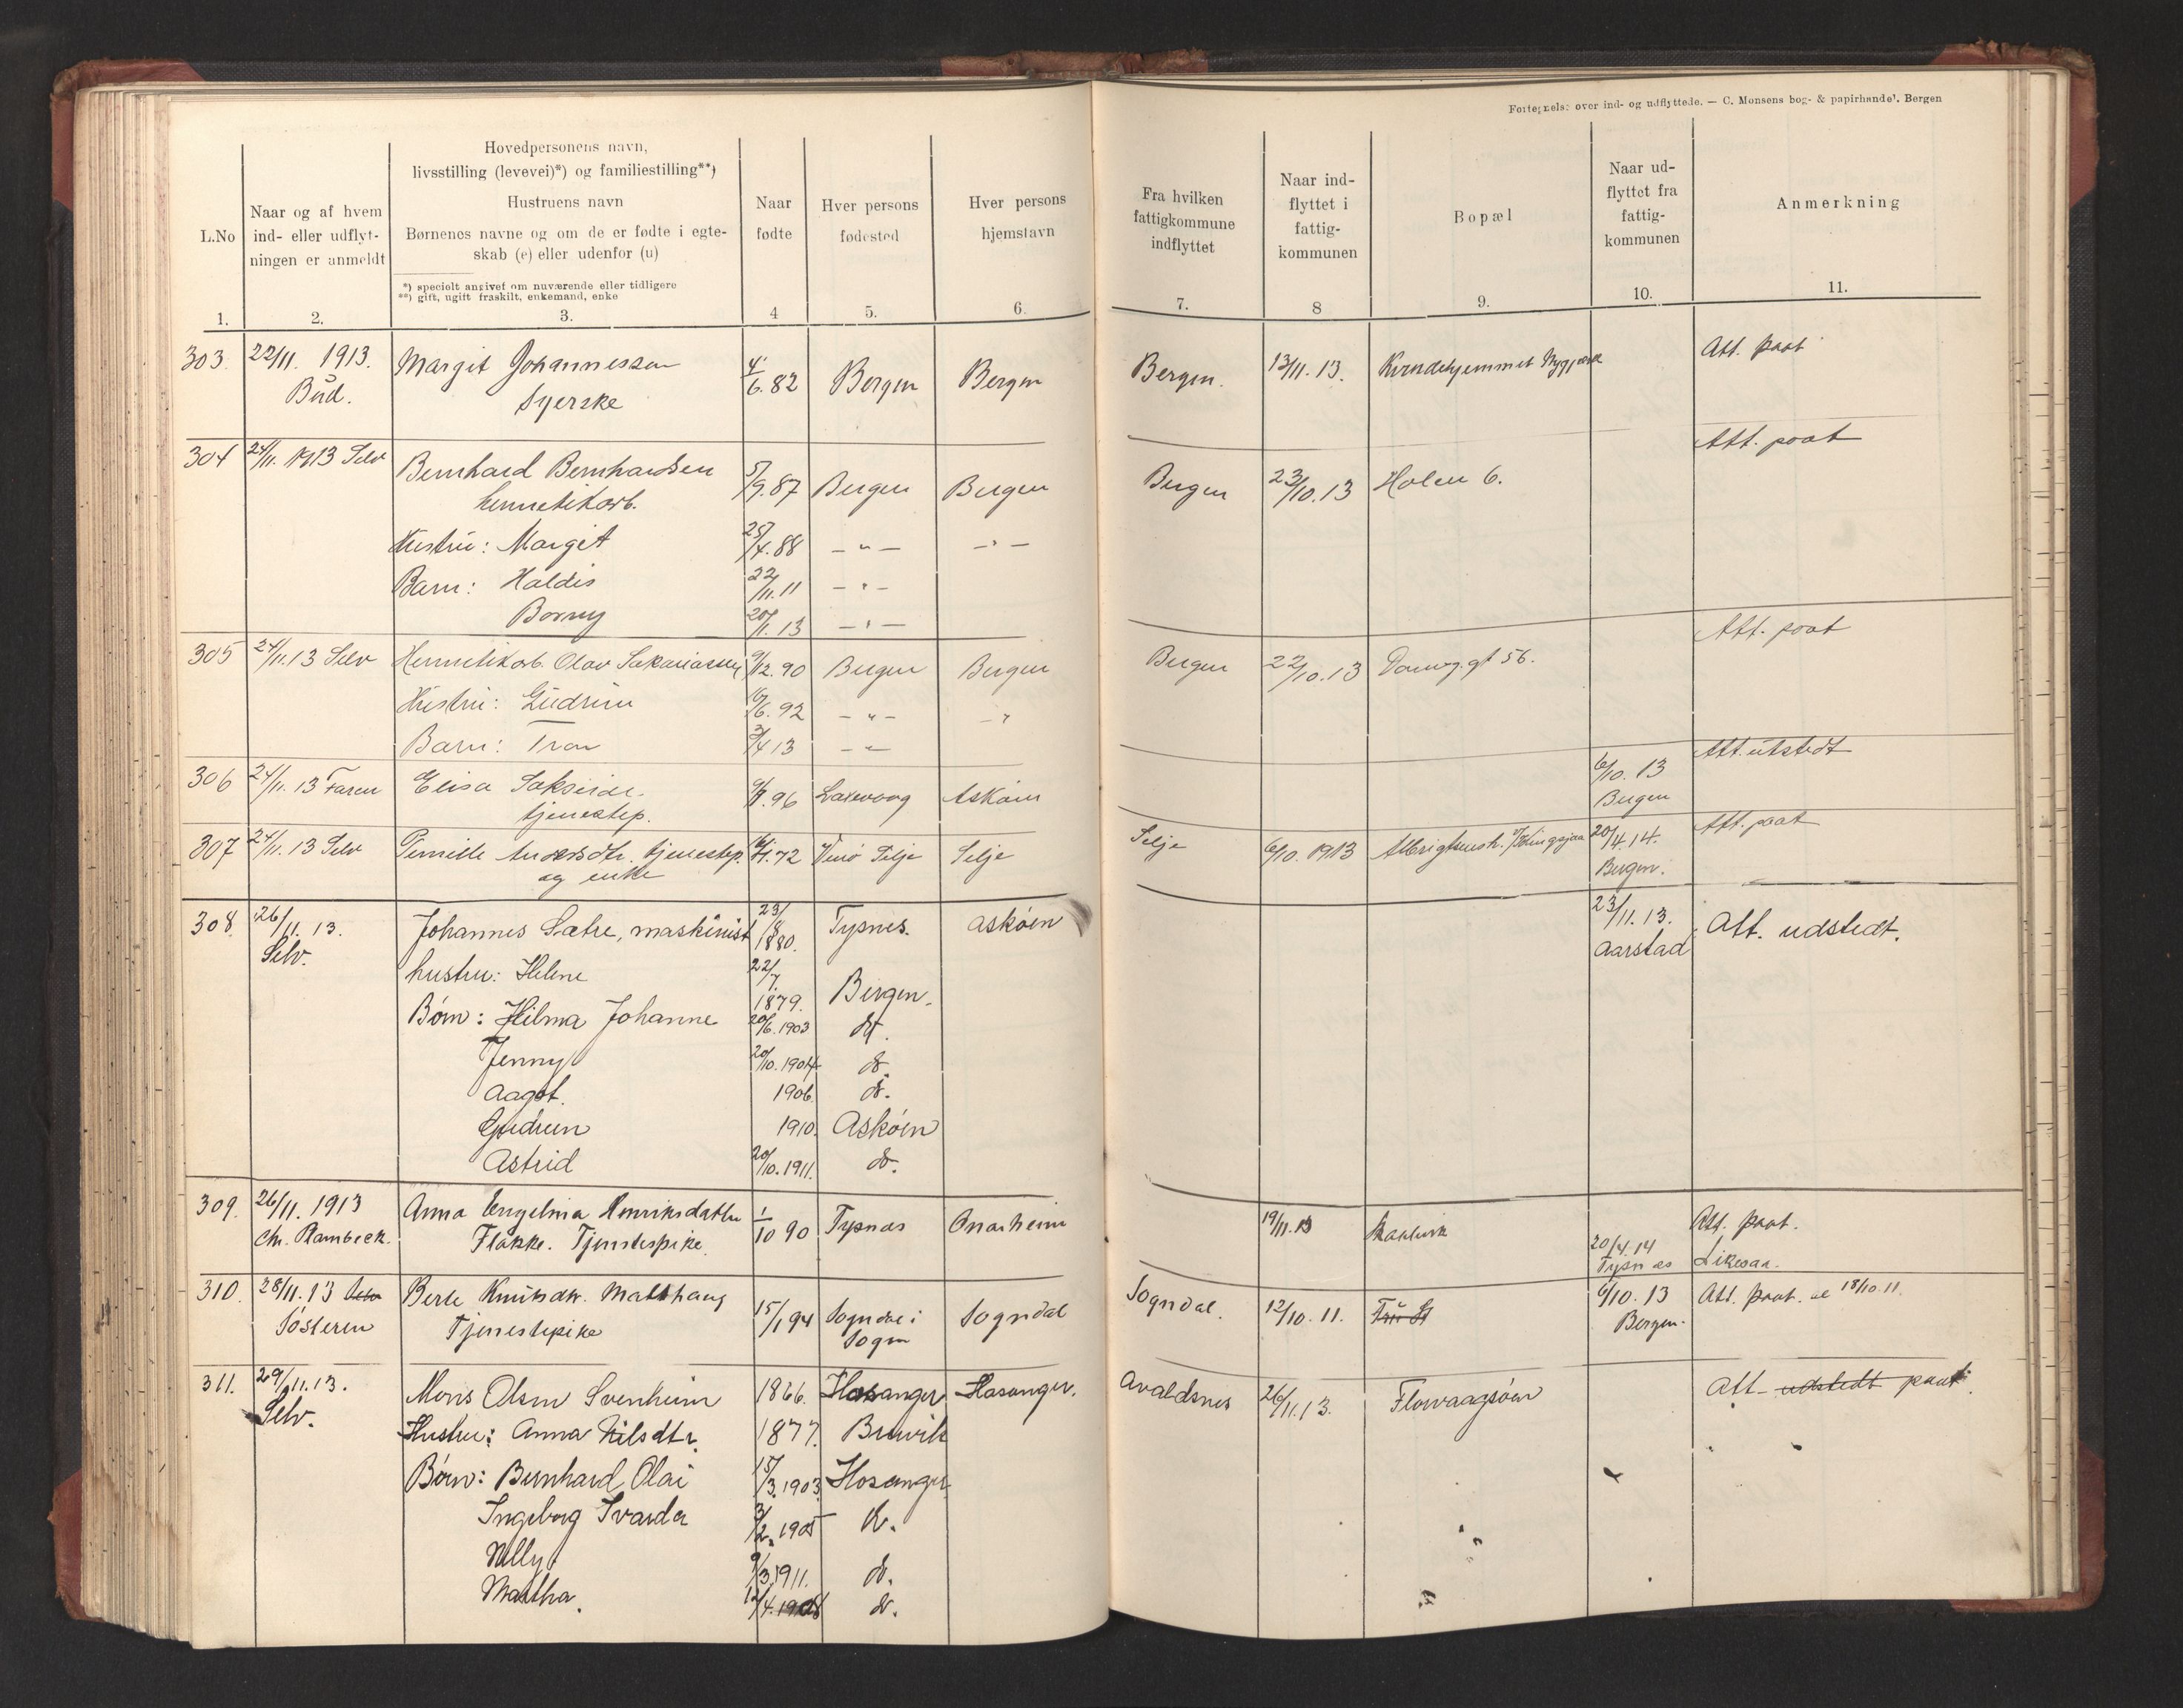 Fortegnelse over ind- og udflyttede. — C. Monsens bog- & papirhandel. Bergen
L.No
Naar og af hvem
ind- eller udflyt-
ningen er anmeldt
Hovedpersonens navn,
livsstilling (levevei)*) og familiestilling**)
Hustruens navn
Børnenes navne og om de er fødte i egte-
skab (e) eller udenfor (u)
*) specielt angivet om nuværende eller tidligere
**) gift, ugift fraskilt, enkemand, enke
Naar
fødte
Hver persons
fødested
Hver persons
hjemstavn
Fra hvilken
fattigkommune
indflyttet
Naar ind-
flyttet i
fattig-
kommunen
Bopæl
Naar ud-
flyttet fra
fattig-
kommunen
Anmerkning
1. 2. 3. 4 5. 6. 7. 8 9. 10. 11.
303. 22/11. 1913. Margit Johannessen 4/6.82 Bergen Bergen Bergen. 13/11. 13. Kvindehjemmet Att. paat
Bud. Syerske
304 24/11. 1913 Selv Bernhard Bernhardsen 5/9.87 Bergen Bergen Bergen 23/10.13 Holen 6. Att. paat
hermetikarb.
Hustru: Margit 25/4.88 — " — — " —
Barn: Haldis 22/11.11 — " —
Borny 20/1.13 — " —
305 24/11.13 Selv Hermetikarb. Olav Sakariassen 9/12.90 Bergen Bergen Bergen 22/10.13 Damsg.gt 56. Att. paat
Hustru: Gudrun 16/6.92 — " — — "
Barn: Tron 3/4 13 — " —
306 24/11.13 Faren Elisa 96 Laxevaag Askøin 6/10.13 Att. utstedt
tjenestep. Bergen
307 24/11.13 Selv Pernille Andersdtr. tjenestep. 72 Selje Selje Selje 6/10.1913 20/4.14. Att. paat
og enke Bergen.
308. 26/11. 13. Johannes Sætre, maskinist 23/8 1880. Tysnes. Askøen 23/11.13. Att. udstedt.
Selv. Aarstad
hustru: Helene 22/7. 1879. Bergen.
Børn: Hilma Johanne 20/6.1903 do.
Jenny 20/10.1904 do.
Aagot. 1906. do.
Gudrun 1910. Askøen
Astrid 20/10.1911. do.
309. 26/11. 1913 Anna Engelina Henriksdatter 1/10 90 Tysnæs Onarheim 19/11.13 Att. paat.
Chr. Rambeck. Flakke. Tjenestepike. 20/4.14
Tysnæs Likesaa.
310. 28/11.13 Selv Berte Knutsdtr. Malthaug 15/1 94 Sogndal i Sogndal Sogndal. 12/10. 11. 6/10.13 Att. paat. 18/10.11.
Søsteren Tjenestepike Sogn Bergen.
311. 29/11.13. Mons Olsen Svenheim 1866. Hosanger Hosanger. Avaldsnes 26/11.13. Flowaagsøen Att. udstedt paat.
Selv.
Hustru: Anna Nilsdtr. 1877. Bruvik
Børn: Bernhard Olai 15/3.1903. Hosanger
Ingeborg Svarda 3/2.1905 do.
Nelly 9/3.1911. do.
Martha. 12/4.1908 do.